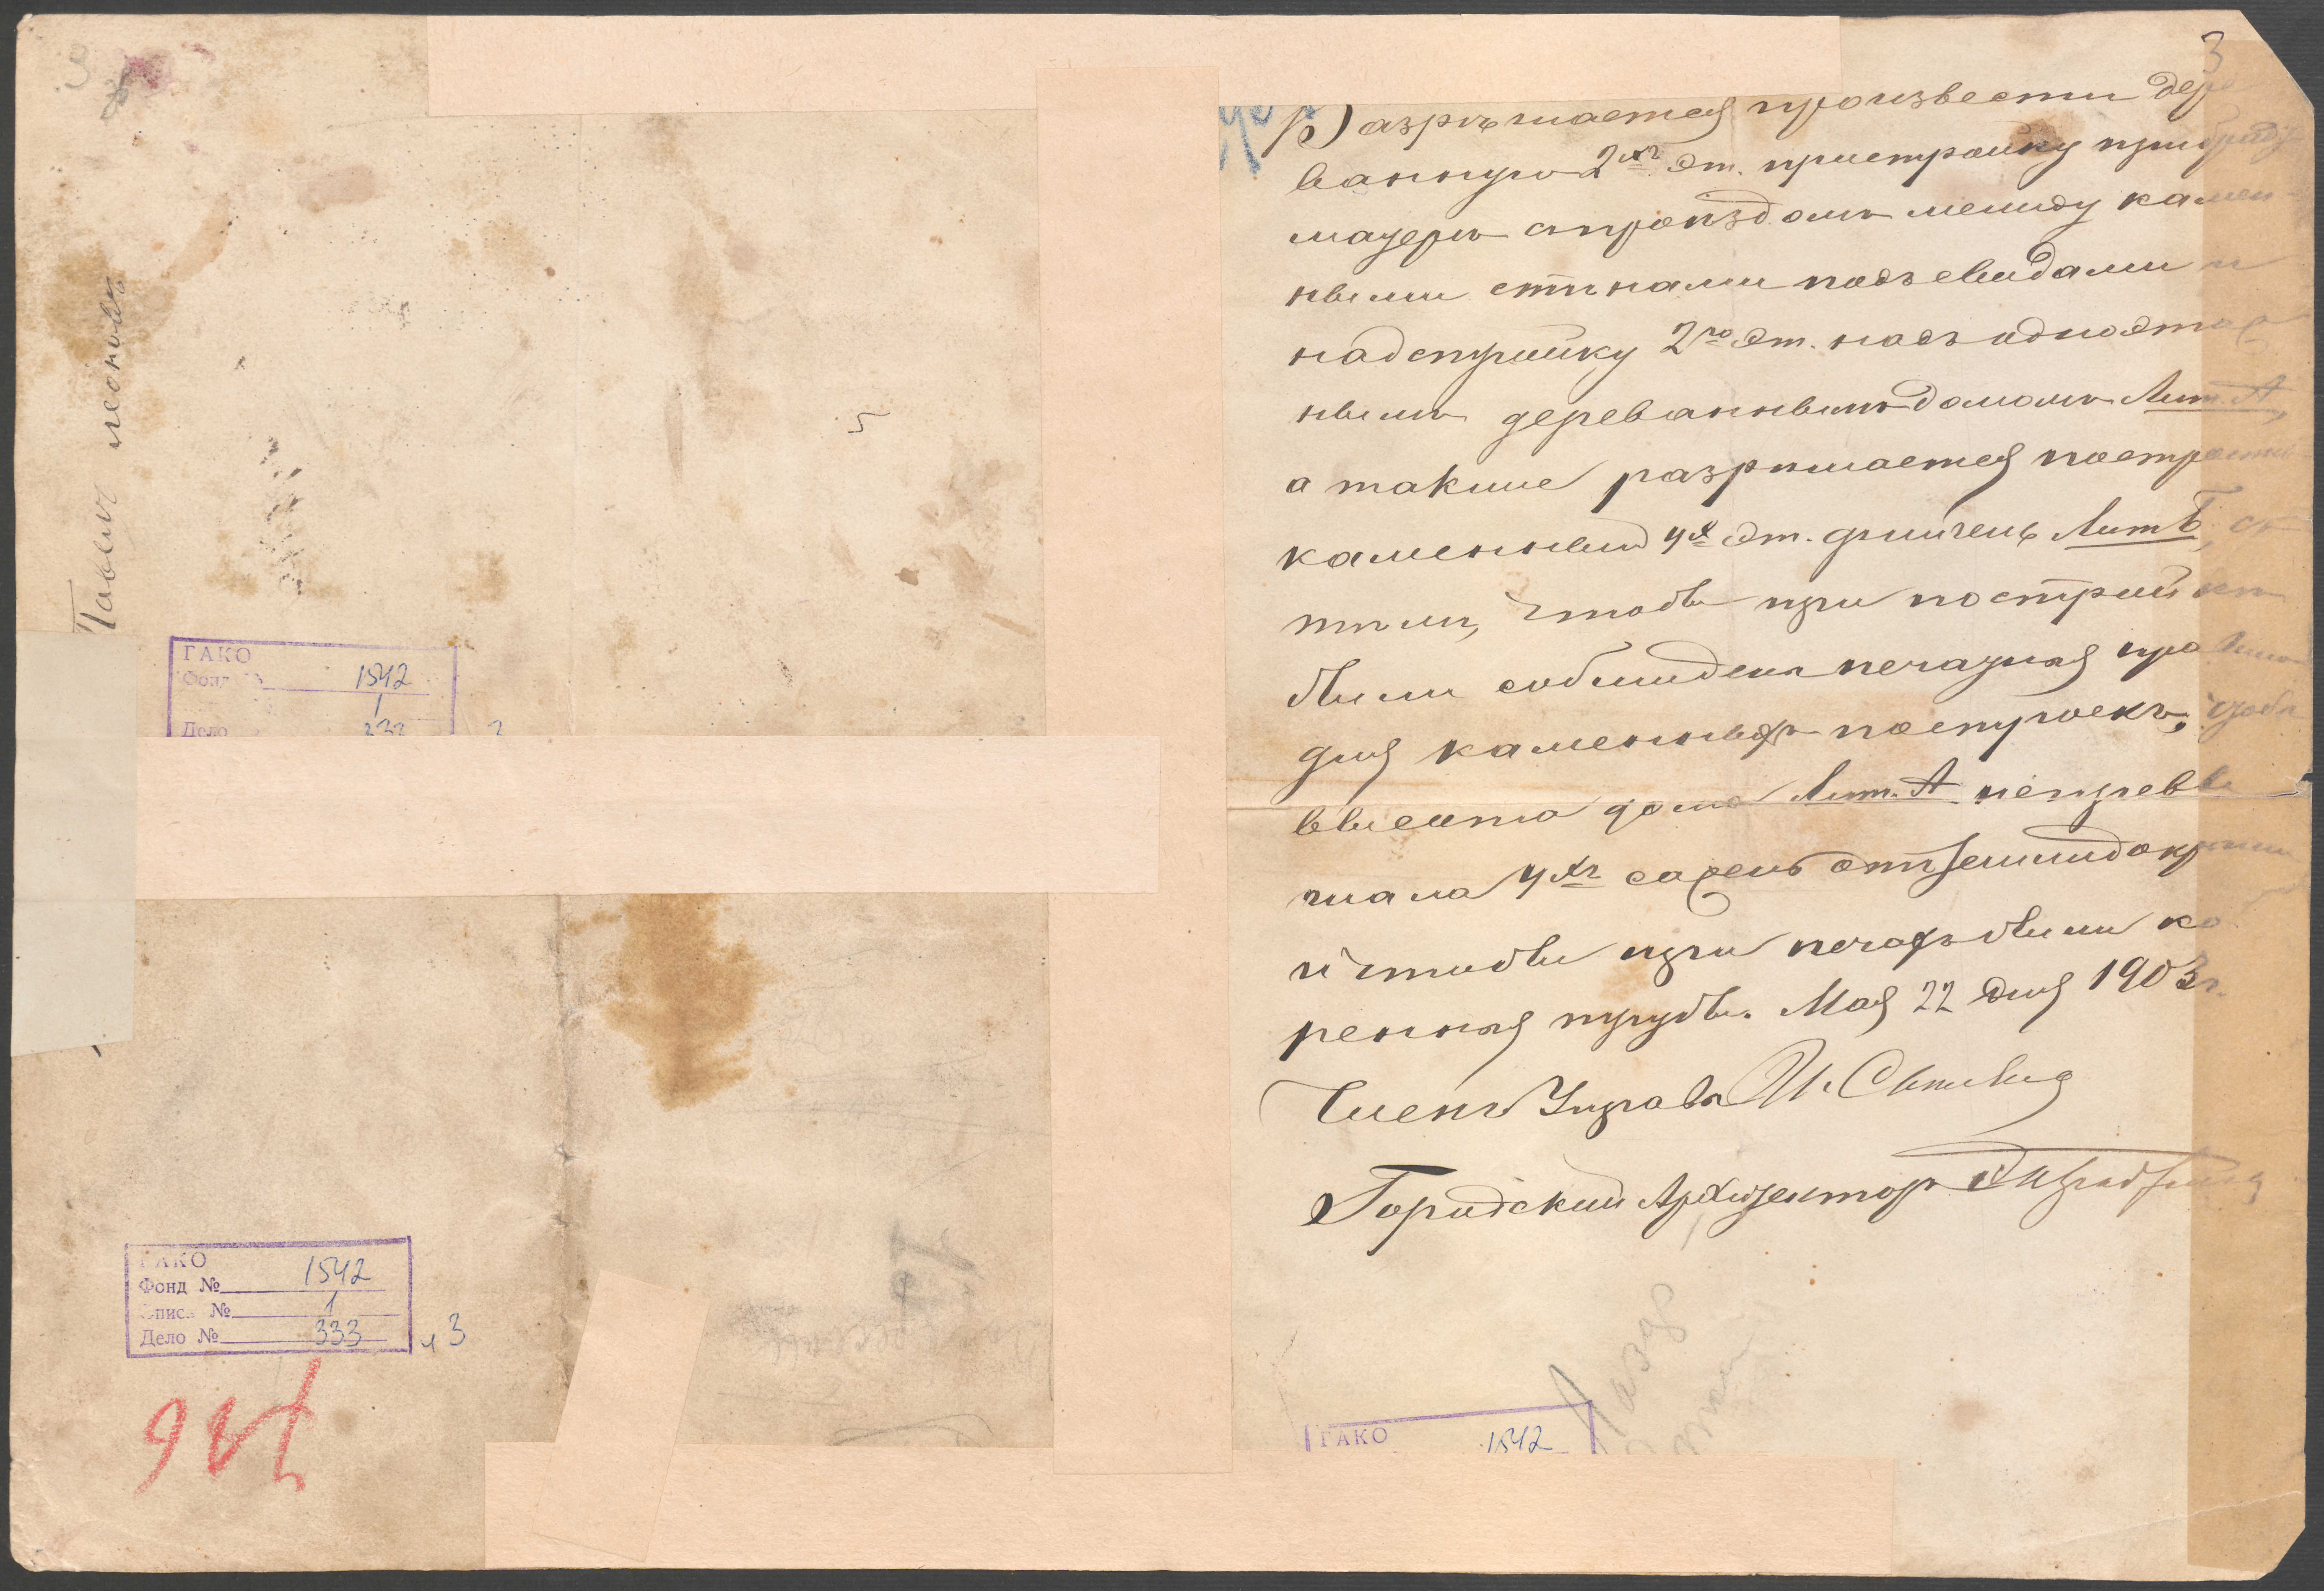 3
Павелъ Леоновъ
5
ГАКО
Фонд 1542
1
Дело 333
ГАКО
Фонд № 1542
Опись № 1
Дело № 333 л 3
3
Разрѣшается произвести дере
вянную 2хъ эт. пристройку
съ проѣздомъ между камен
ными стѣнами подъ сводами и
надстройку 2го эт. надъ одноэтаж
нымъ деревяннымъ домомъ Лит А,
а также разрѣшается построить
каменный 4х эт. флигель Лит Б, съ
тѣмъ, чтобы при постройкѣ
были соблюдены правила
для каменныхъ построекъ, чтобы
высота дома Лит. А непревы
шала 4хъ сажень отъ земли до крыши
и чтобы при печахъ были ко
ренныя трубы. Мая 22 дня 1903 г.
Членъ Управы
Городской Архитекторъ
ГАКО
1542